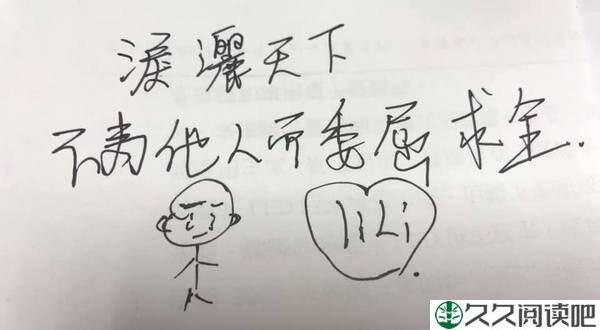 淚灑天下
不为他人而委屈求全.
liLi
久久阅读吧